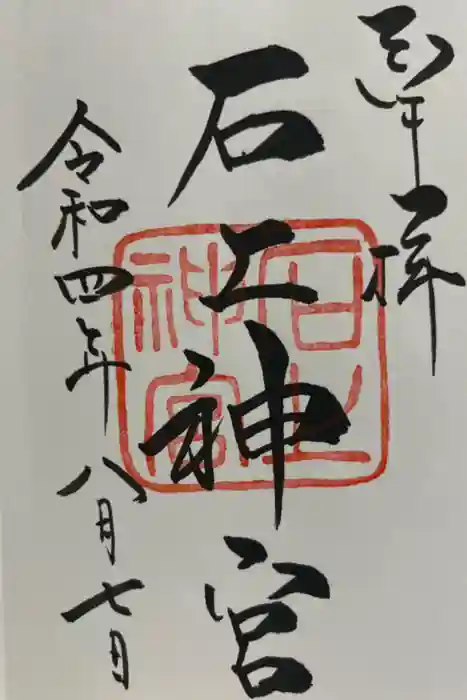 奉拝
石上神宮
令和四年八月七日
石上神宮